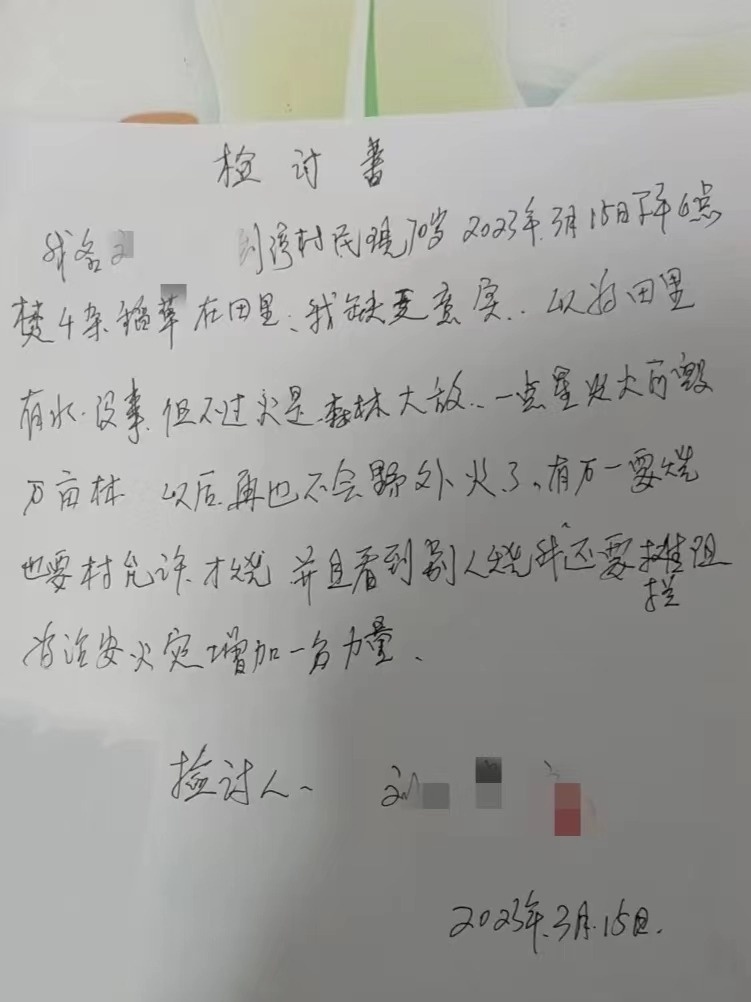 检讨书
我名 湾村民现70岁2023年.3月15日下午6点
焚4朵稻草在田里、我缺乏意实..以为田里
有水.没事.但不过火是森林大敌..一点星火可毁
万亩林 以后再也不会野外火了。有万一要烧
也要村允许.才烧 并且看到别人烧我还要拦阻
为治安火灾增加一名力量、
检讨人~ 刘
2023年.3月.15日.